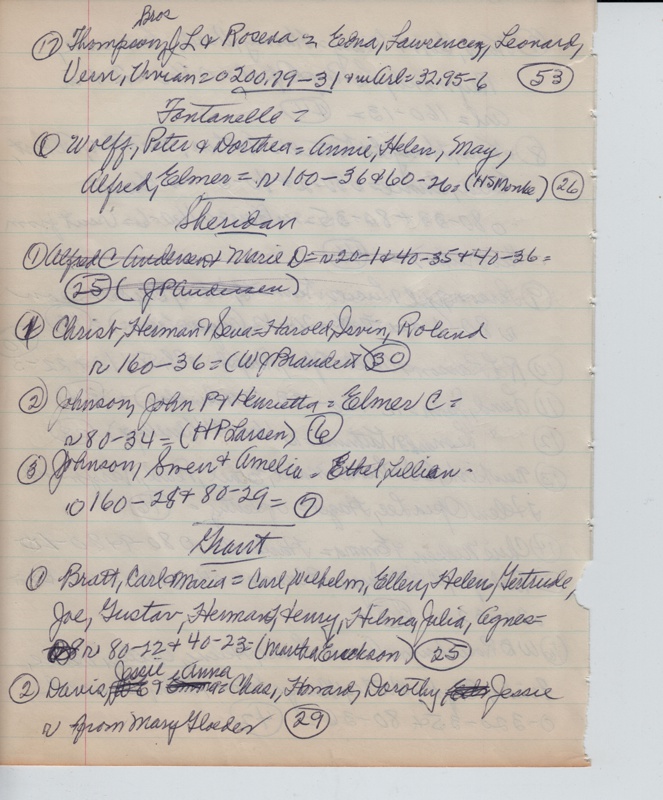 Bros
(17) Thompson, J L & Rosena = Edna, Lawrence, Leonard,
Vern, Vivian = 0 200.79-31 + in Arl = 32.95-6 (53)
Fontanelle =
(1) Wolff, Peter & Dorthea = Annie, Helen, May,
Alfred, Elmer = r 100-36 & 60-26 = (HS Monke) (26)
Sheridan
(1) Alfred C Andersen & Marie D = r 20-1 & 40-35 + 40-36 =
(25) (J P Andersen)
(1) Christ, Herman & Sena = Harold, Irvin, Roland
r 160-36 = (W J Brandett (30)
(2) Johnson, John P & Henrietta = Elmer C =
r 80-34 = (H P Larsen) (6)
(3) Johnson, Swen & Amelia = Ethel, Lillian -
0 160-28 + 80-29 = (7)
Grant
(1) Bratt, Carl & Maria = Carl, Wilhelm, Ellen, Helen, Gertrude,
Joe, Gustav, Herman, Henry, Hilma, Julia, Agnes =
r 80-22 + 40-23 = (Martha Erickson) (25)
Jessie Anna
(2) Davis, = Chas, Howard, Dorothy Jessie
r from Mary (29)